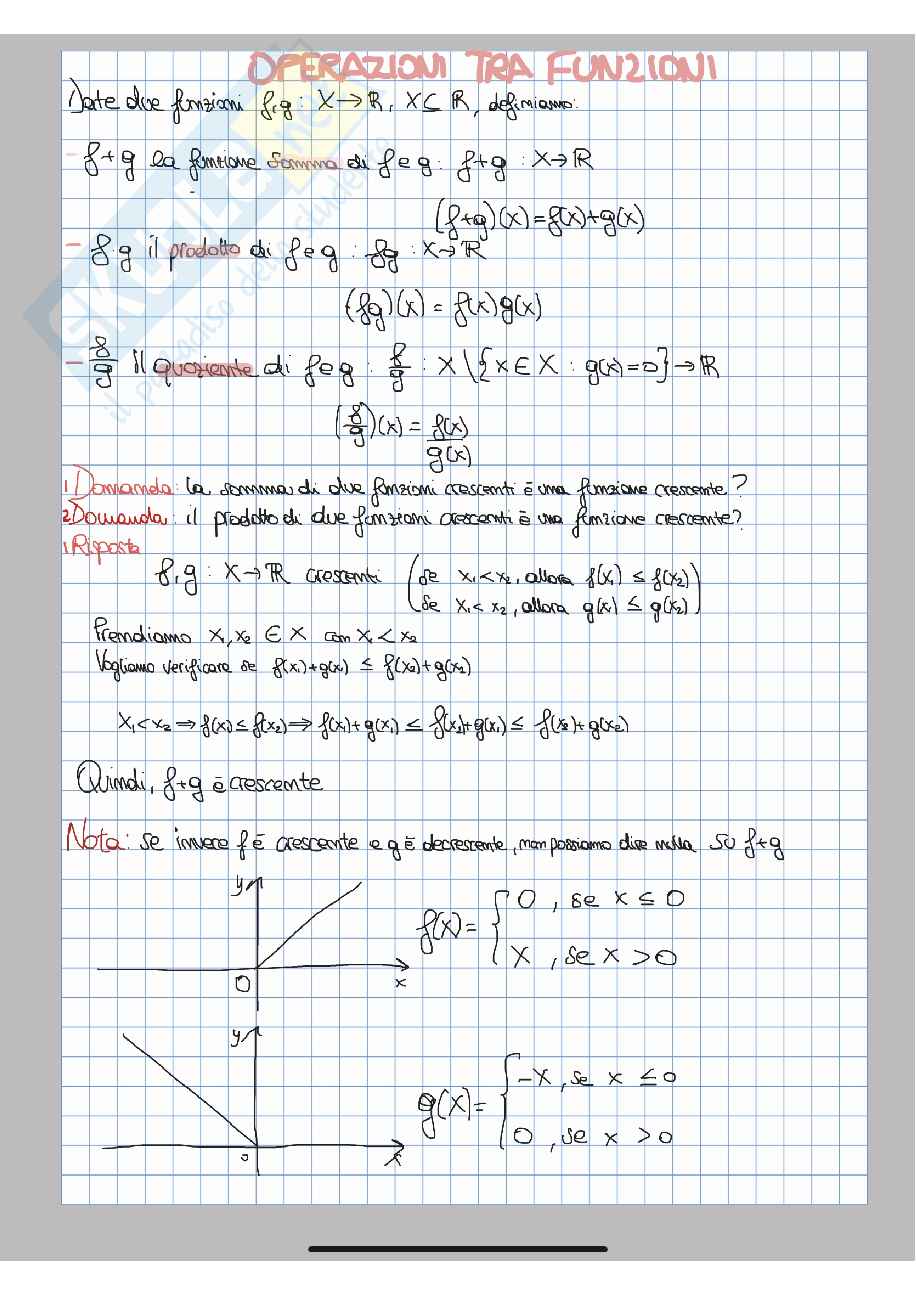 OPERAZIONI TRA FUNZIONI
Date due funzioni f,g: X→ℝ, X⊆ℝ, definiamo:
- f+g la funzione somma di f e g: f+g : X→ℝ
(f+g)(x)=f(x)+g(x)
- f·g il prodotto di f e g: fg : X→ℝ
(fg)(x) = f(x)g(x)
- f/g il quoziente di f e g: f/g : X\{x∈X : g(x)=0}→ℝ
(f/g)(x) = f(x)/g(x)
1 Domanda: la somma di due funzioni crescenti è una funzione crescente?
2 Domanda: il prodotto di due funzioni crescenti è una funzione crescente?
1 Risposta
f,g : X→ℝ crescenti (se x₁<x₂, allora f(x₁) ≤ f(x₂)
se x₁<x₂, allora g(x₁) ≤ g(x₂))
Prendiamo x₁,x₂ ∈ X con x₁<x₂
Vogliamo verificare se f(x₁)+g(x₁) ≤ f(x₂)+g(x₂)
x₁<x₂ ⇒ f(x₁)≤f(x₂) ⇒ f(x₁)+g(x₁) ≤ f(x₂)+g(x₁) ≤ f(x₂)+g(x₂)
Quindi, f+g è crescente
Nota: se invece f è crescente e g è decrescente, non possiamo dire nulla su f+g
y
f(x)= { 0 , se x ≤ 0
x , se x >0
0
x
y
g(x)= { -x , se x ≤0
0 , se x >0
0
x
skuola.net
il paradiso dello studente